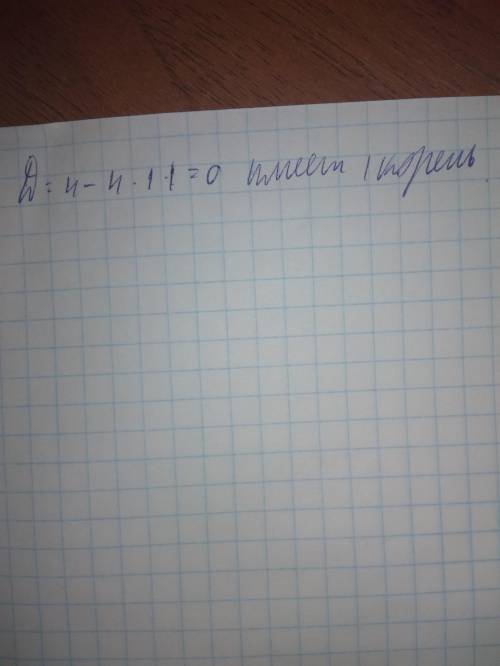 D = 4 - 4 · 1 · 1 = 0 имеет 1 корень.